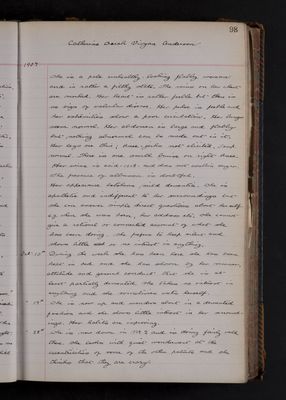 98
Catherine Sarah Virgoe Anderson
1907
She is a pale unhealthy looking flabby woman
and is rather a filthy state. The veins on her chest
are marked. Her heart is rather feeble but there is
no sign of valvular disease. Her pulse is feeble and
her extremities show a poor circulation. Her lungs
seem normal. Her abdomen is large and flabby
but nothing abnormal can be made out in it.
Her legs are thin; knee jerks not elicited,
normal. There is one small bruise on right knee.
Her urine is acid 1018 and does not contain sugar.
The presence of albumen is doubtful.
Her appearance betokens mild dementia. She is
apathetic and indifferent to her surroundings but
she can answer simple direct questions about herself
e.g. when she was born, her address etc. She cannot
give a rational or connected account of what she
has been doing. She prefers to keep silent and
shows little or no interest in anything.
Oct 10th During the week she has been here she has been
kept in bed and she has shown by her manner,
attitude and general conduct that she is at
least partially demented. She takes no interest in
anything and she sometimes wets herself.
" 19th She is now up and wanders about in a demented
fashion and she shows little interest in her surround-
ings. Her habits are improving.
" 28th She is now down in and is doing fairly well
there. She looks with quiet wonderment at the
eccentricities of some of the other patients and she
thinks that they are crazy.